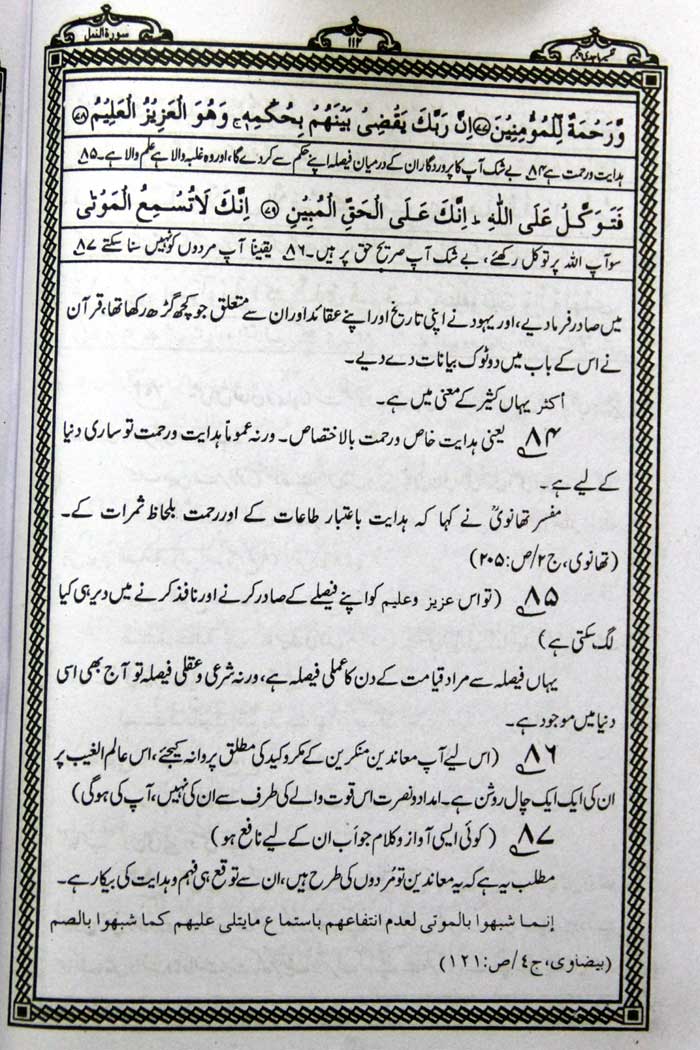 سورة النمل
۱۱۲
تفسیر ماجدی پنجم
وَّرَحْمَةٌ لِّلْمُؤْمِنِيْنَ ﴿۷۷﴾ اِنَّ رَبَّكَ يَقْضِىْ بَيْنَهُمْ بِحُكْمِهٖ ۚ وَهُوَ الْعَزِيْزُ الْعَلِيْمُ ﴿۷۸﴾
ہدایت ورحمت ہے ۸۴ بے شک آپ کا پروردگار ان کے درمیان فیصلہ اپنے حکم سے کردے گا، اور وہ غلبہ والا ہے علم والا ہے۔ ۸۵
فَتَوَكَّلْ عَلَى اللّٰهِ ؕ اِنَّكَ عَلَى الْحَقِّ الْمُبِيْنِ ﴿۷۹﴾ اِنَّكَ لَا تُسْمِعُ الْمَوْتٰى
سو آپ اللہ پر توکل رکھئے، بے شک آپ صریح حق پر ہیں۔ ۸۶ یقیناً آپ مردوں کو نہیں سنا سکتے ۸۷
میں صادر فرمادیے، اور یہود نے اپنی تاریخ اور اپنے عقائد اور ان سے متعلق جو کچھ گڑھ رکھا تھا، قرآن
نے اس کے باب میں دوٹوک بیانات دے دیے۔
أکثر یہاں کثیر کے معنی میں ہے۔
۸۴ یعنی ہدایت خاص ورحمت بالاختصاص۔ ورنہ عموماً ہدایت ورحمت تو ساری دنیا
کے لیے ہے۔
مفسر تھانویؒ نے کہا کہ ہدایت باعتبار طاعات کے اور رحمت بلحاظ ثمرات کے۔
(تھانوی، ج۲/ص:۲۰۵)
۸۵ (تو اس عزیز وعلیم کو اپنے فیصلے کے صادر کرنے اور نافذ کرنے میں دیر ہی کیا
لگ سکتی ہے)
یہاں فیصلہ سے مراد قیامت کے دن کا عملی فیصلہ ہے، ورنہ شرعی وعقلی فیصلہ تو آج بھی اسی
دنیا میں موجود ہے۔
۸۶ (اس لیے آپ معاندین منکرین کے مکروکید کی مطلق پروا نہ کیجئے، اس عالم الغیب پر
ان کی ایک ایک چال روشن ہے۔ امداد ونصرت اس قوت والے کی طرف سے ان کی نہیں، آپ کی ہوگی)
۸۷ (کوئی ایسی آواز وکلام جو أب ان کے لیے نافع ہو)
مطلب یہ ہے کہ یہ معاندین تو مُردوں کی طرح ہیں، ان سے توقع ہی فہم وہدایت کی بیکار ہے۔
إنما شبهوا بالموتى لعدم انتفاعهم باستماع مايتلى عليهم كما شبهوا بالصم
(بیضاوی، ج٤/ص:۱۲۱)